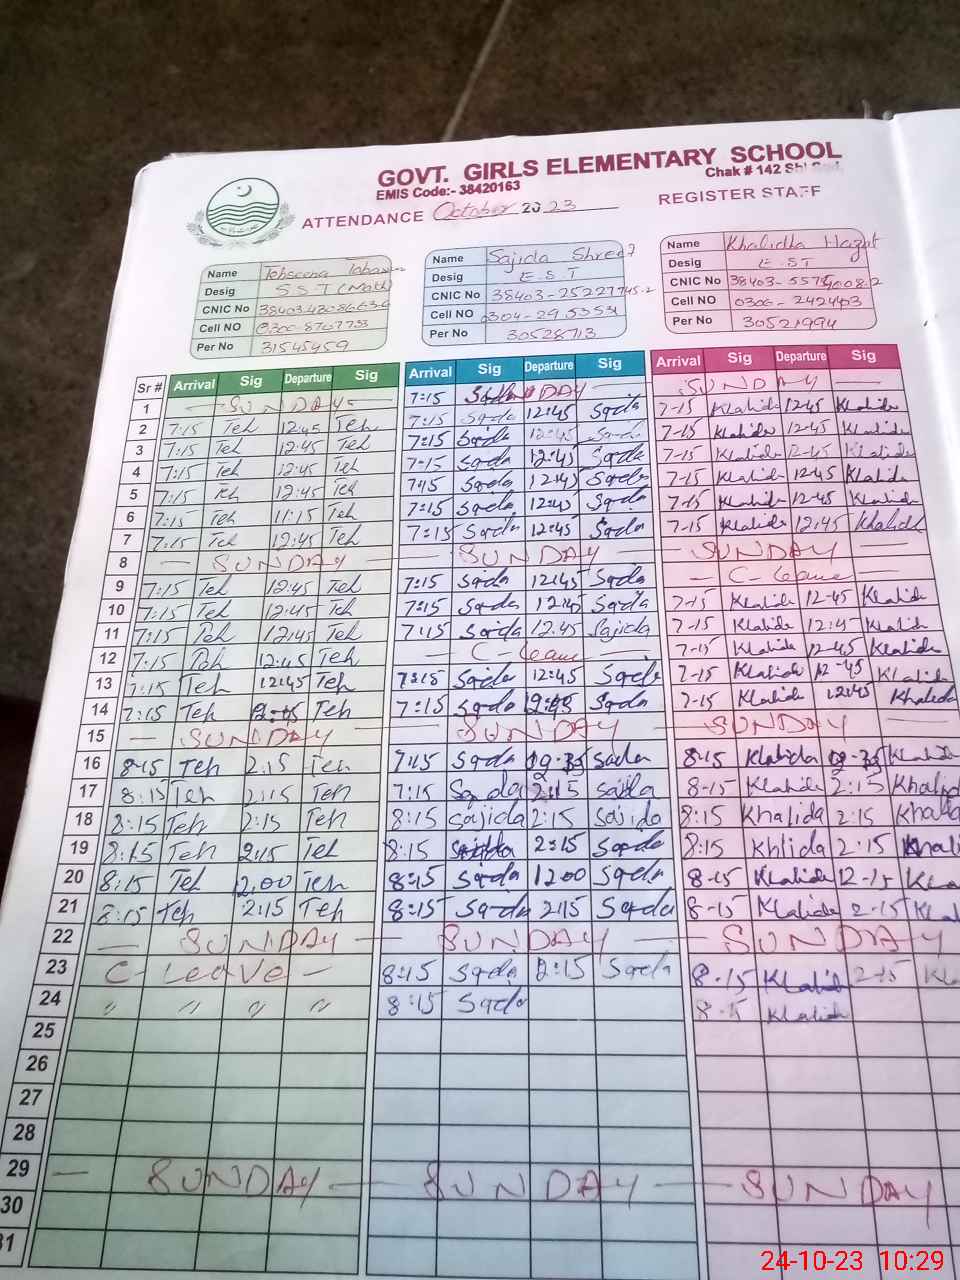 GOVT. GIRLS ELEMENTARY SCHOOL
EMIS Code:- 38420163 Chak # 142
ATTENDANCE October 2023 REGISTER STAFF
Name Name Sajida Name Khalida
Desig S S T (Math) Desig E.S.T Desig E.ST
CNIC No CNIC No CNIC No
Cell NO Cell NO Cell NO
Per No 31545459 Per No 30528713 Per No 30521994
Sr # Arrival Sig Departure Sig Arrival Sig Departure Sig Arrival Sig Departure Sig
1 SUNDAY 7:15 SUNDAY SUNDAY
2 7:15 Teh 12:45 Teh 7:15 Sada 12:45 Sada 7-15 Klahida 12-45 Klahida
3 7:15 Teh 12:45 Teh 7:15 Sada 12:45 Sada 7-15 Klahida 12-45 Klahida
4 7:15 Teh 12:45 Teh 7:15 Sada 12:45 Sada 7-15 Klahida 12-45 Klahida
5 7:15 Teh 12:45 Teh 7:15 Sada 12:45 Sada 7-15 Klahida 12-45 Klahida
6 7:15 Teh 11:15 Teh 7:15 Sada 12:45 Sada 7-15 Klahida 12-45 Klahida
7 7:15 Teh 12:45 Teh 7:15 Sada 12:45 Sada 7-15 Klahida 12:45 Khalida
8 SUNDAY SUNDAY SUNDAY
9 7:15 Teh 12:45 Teh 7:15 Sada 12:45 Sada C-leave
10 7:15 Teh 12:45 Teh 7:15 Sada 12:45 Sada 7-15 Klahida 12-45 Klahida
11 7:15 Teh 12:45 Teh 7:15 Sajida 12:45 Sajida 7-15 Klahida 12-45 Klahida
12 7:15 Teh 12:45 Teh C-leave 7-15 Klahida 12-45 Klahida
13 7:15 Teh 12:45 Teh 7:15 Sajida 12:45 Sada 7-15 Klahida 12-45 Klahida
14 7:15 Teh 12:45 Teh 7:15 Sada 12:45 Sada 7-15 Klahida 12:45 Khalida
15 SUNDAY SUNDAY SUNDAY
16 8-15 Teh 2:15 Teh 7:15 Sada Sada 8-15 Klahida Klahida
17 8:15 Teh 2:15 Teh 7:15 Sada 2:15 Sajida 8-15 Klahida 2:15 Khalid
18 8:15 Teh 2:15 Teh 8:15 Sajida 2:15 Sajida 8:15 Khalida 2:15 Khalida
19 8:15 Teh 2:15 Teh 8:15 2:15 Sada 8:15 Khlida 2:15 Khali
20 8:15 Teh 12.00 Teh 8:15 Sada 12:00 Sada 8-15 Klahida 12-15 Kla
21 8:15 Teh 2:15 Teh 8:15 Sada 2:15 Sada 8-15 Klahida 2-15 Kla
22 SUNDAY SUNDAY SUNDAY
23 C-Leave 8:15 Sada 2:15 Sada 8-15 Klahid 2-15 Kla
24 " " " " 8:15 Sada 8-15 Klahida
25
26
27
28
29 SUNDAY SUNDAY SUNDAY
30
31
24-10-23 10:29